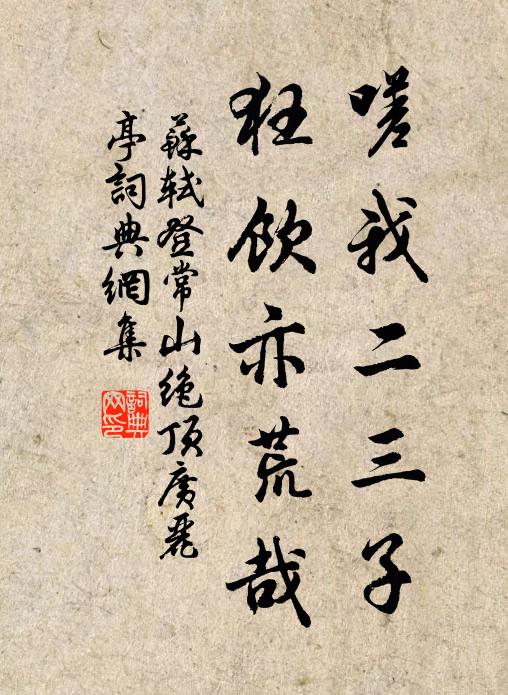 嗟我二三子
狂飲亦荒哉
蘇軾登常山絶頂廣麗
亭詞典網集
詞典
网印